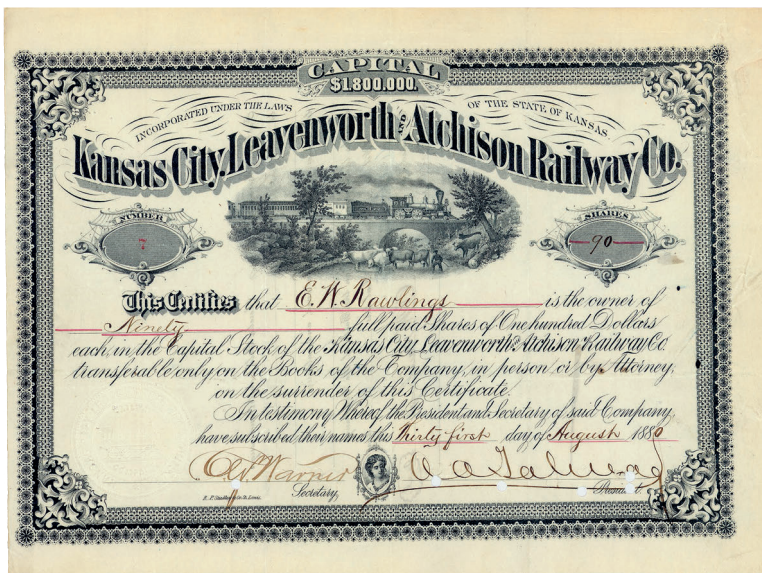 CAPITAL
$1.800.000.
INCORPORATED UNDER THE LAWS OF THE STATE OF KANSAS
Kansas City, Leavenworth AND Atchison Railway Co.
NUMBER
7
SHARES
90
This Certifies that E. W. Rawlings is the owner of
Ninety full paid Shares of One hundred Dollars
each, in the Capital Stock of the Kansas City Leavenworth & Atchison Railway Co
transferable only on the Books of the Company, in person or by Attorney,
on the surrender of this Certificate.
In testimony Whereof, the President and Secretary of said Company,
have subscribed their names this Thirty first day of August 1880
Warner
Secretary,
President.